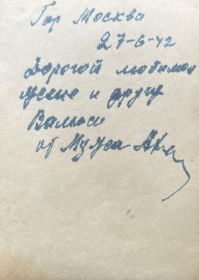 Гор Москва
27-6-42
Дорогой любимой
жене и другу
Валюси
от Мужа